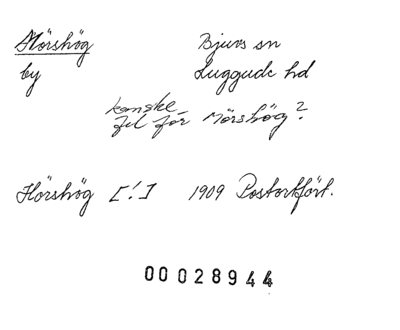 Hörshög Bjuvs sn
by Luggude hd
kanske
fel för Mörshög?
Hörshög [!] 1909 Postortfört.
00 028944